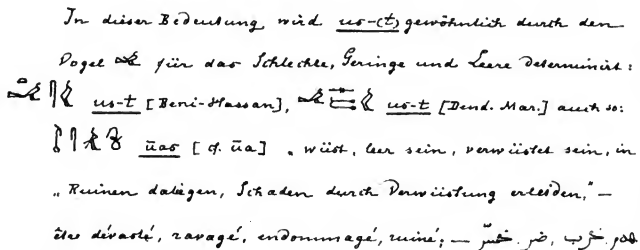 In dieser Bedeutung wird us-(t) gewöhnlich durch den
Vogel für das Schlechte, Geringe und Leere determinirt:
us-t [Beni-Hassan], us-t [Dend. Mar.] auch so:
ūas [cf. ūa] „wüst, leer sein, verwüstet sein, in
„Ruinen daliegen, Schaden durch Verwüstung erleiden,"—
être dévasté, ravagé, endommagé, ruiné; — هدم, خرب, ضر.